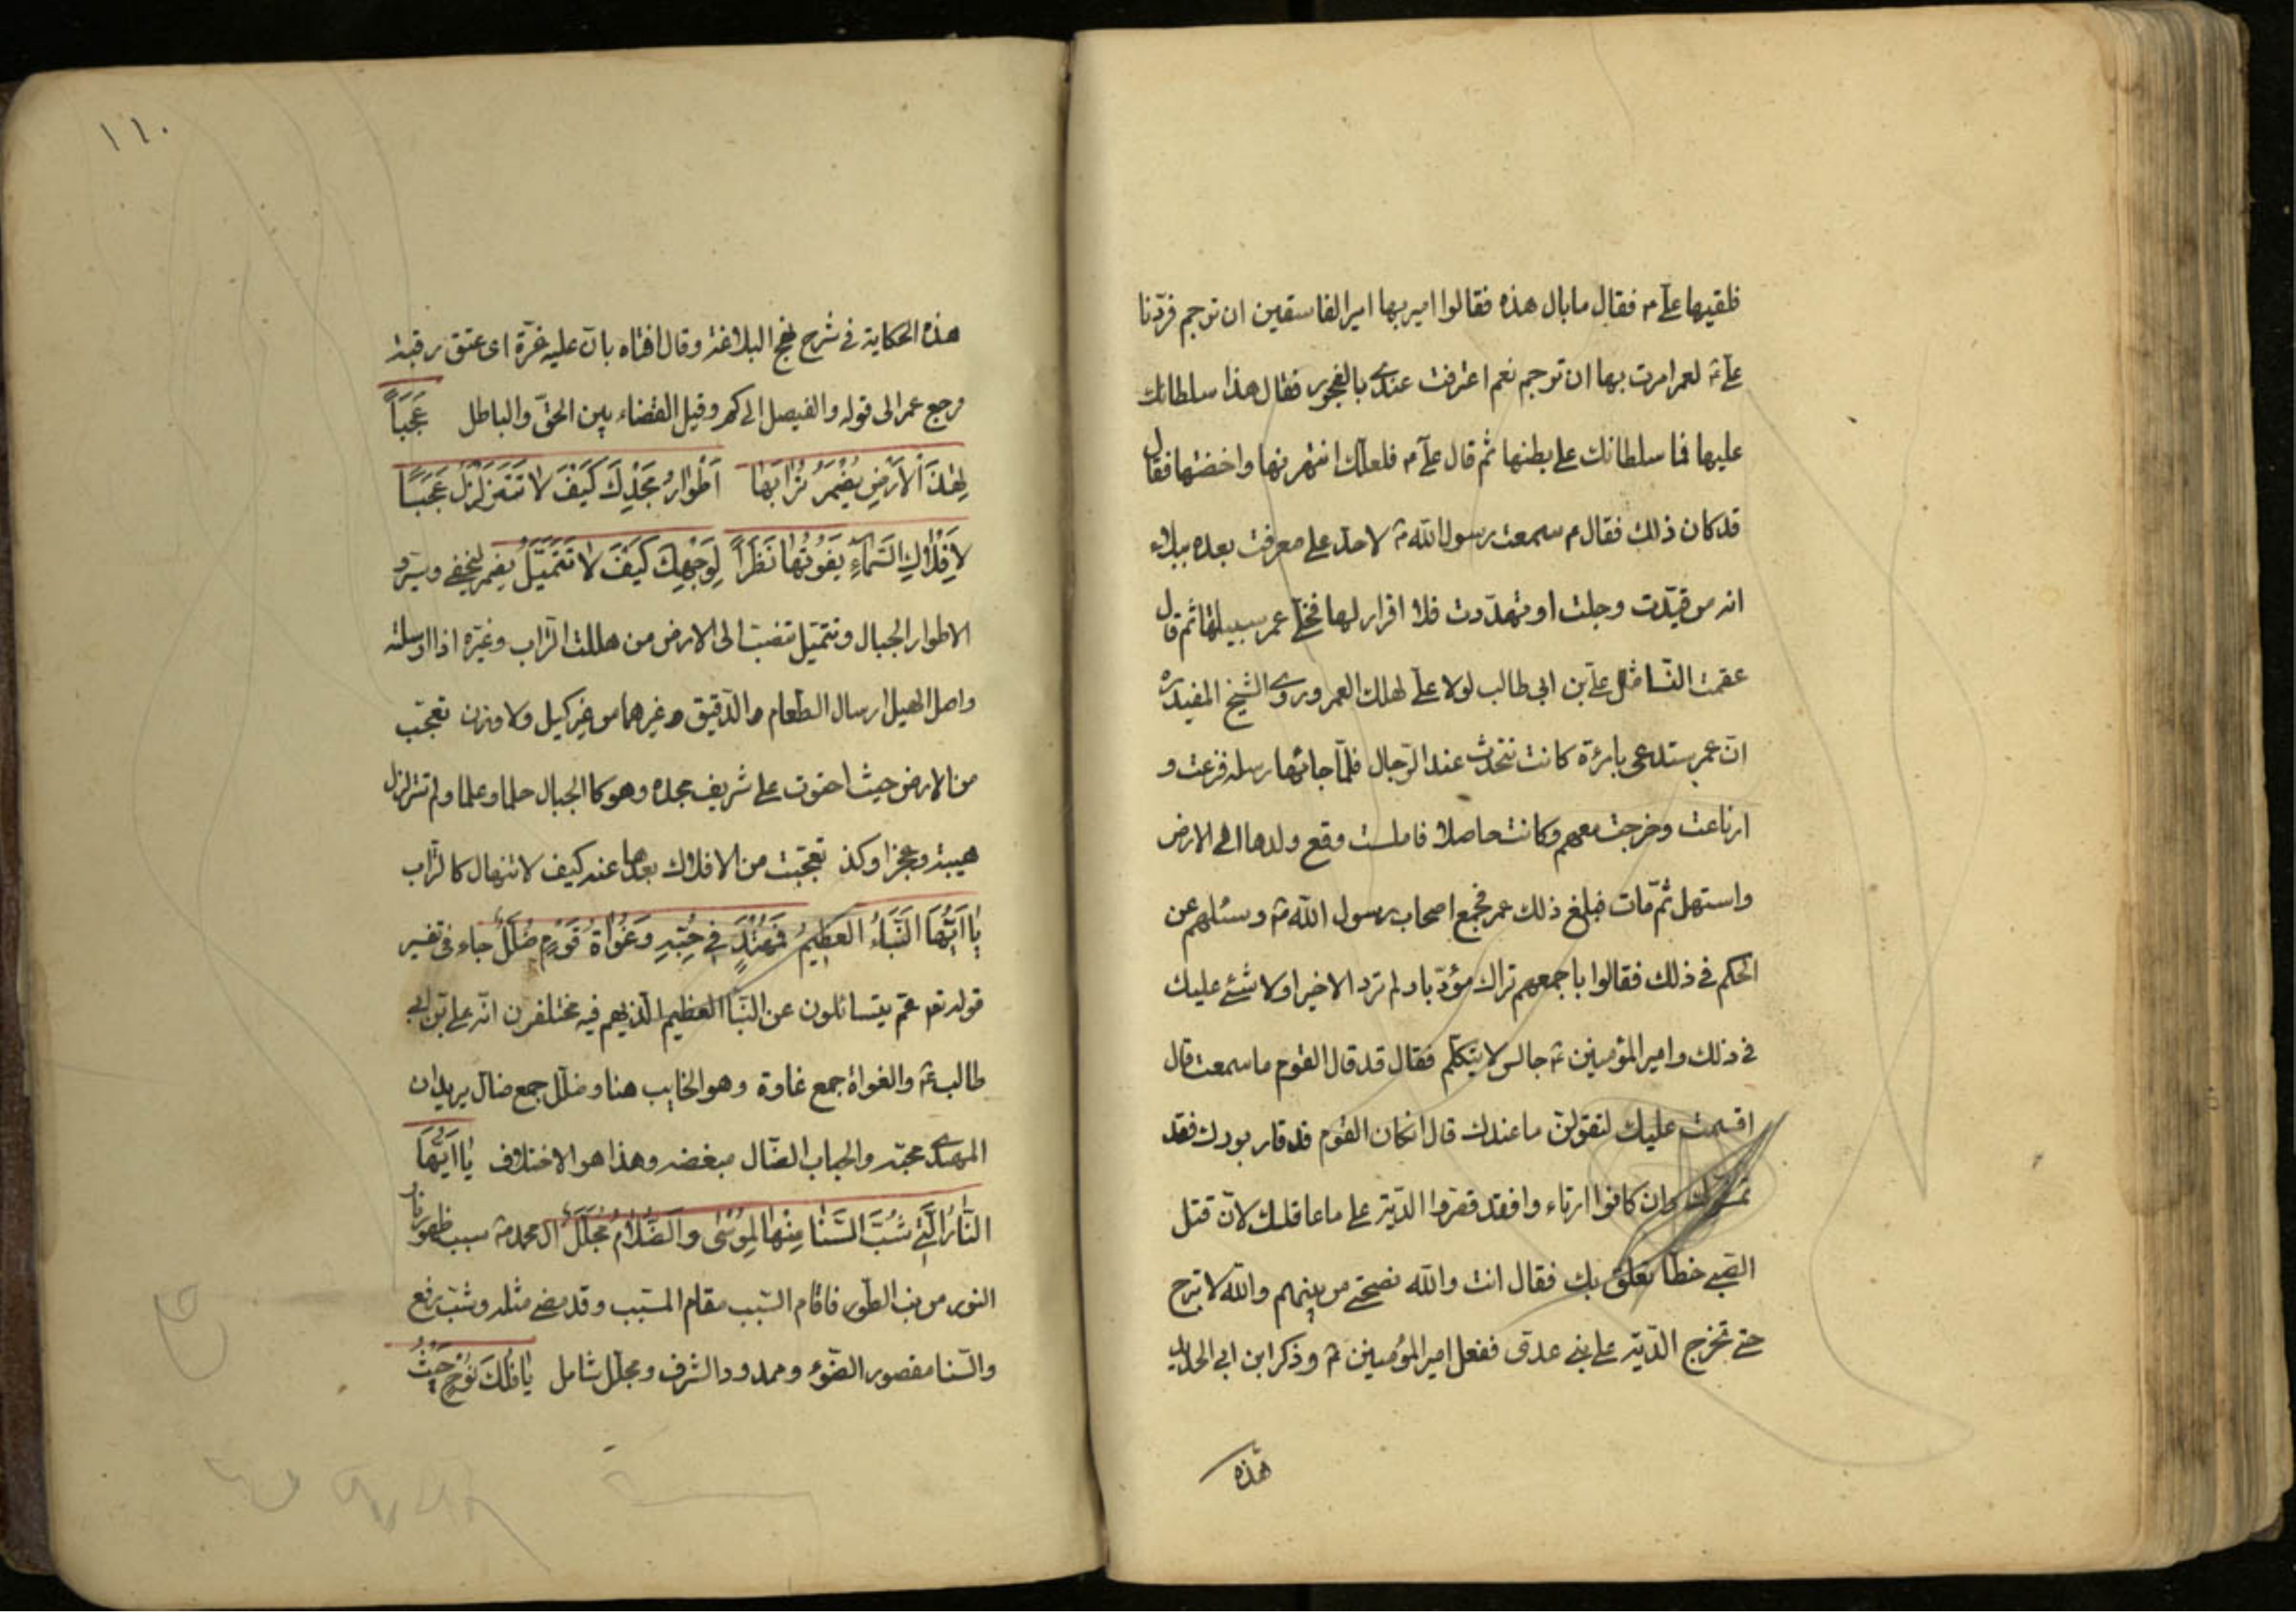 فلقيها علي ع فقال ما بال هذه فقالوا امر بها امير الفاسقين ان ترجم فردّنا
علي ع لعمر امرت بها ان ترجم نعم اعترفت عندي بالفجور فقال هذا سلطانك
عليها فما سلطانك على بطنها ثم قال علي ع فلعلك انتهرتها واخفتها فقال
قد كان ذلك فقال ع سمعت رسول الله ص لا حد على معرفت بعده ببلاء
انه من قيدت وحبلت او تهددت فلا اقرار لها فخلى عمر سبيلها ثم قال
عقمت النسا مثل علي بن ابي طالب لولا علي لهلك العمر وروى الشيخ المفيد ره
انّ عمر ستدعى بامرءة كانت تتحدث عند الرجال فلمّا جائها رسله فزعت و
ارتاعت وخرجت معهم وكانت حاملا فاملست وقع ولدها الى الارض
واستهل ثم مات فبلغ ذلك عمر فجمع اصحاب رسول الله ص وسئلهم عن
الحكم في ذلك فقالوا باجمعهم تراك مؤدّبا ولم ترد الا خيرا ولا شئ عليك
في ذلك وامير المؤمنين ع جالس لا يتكلم فقال قد قال القوم ما سمعت قال
اقسمت عليك لتقولن ما عندك قال انكان القوم قد قاربودك فقد
وان كانوا ارتاء وافقد قصروا الدّية على ما عاقلتك لانّ قتل
الصبي خطا تعلق بك فقال انت والله نصحتني من بينهم والله لا تبرح
حتى تخرج الدّية على بني عدى ففعل امير المؤمنين ع وذكر ابن ابي الحديد
هذه
١٦٠
هذه الحكاية في شرح نهج البلاغة وقال افتاه بانّ عليه غرّة اى عتق رقبة
فرجع عمر الى قوله والفيصل الحاكم وقيل القضاء بين الحقّ والباطل عَجَباً
لِهٰذَا الاَرْضِ يُضْمِرُ تُرَابُهَا اَطْوَارُ مَجْدِكَ كَيْفَ لاَ تَتَزَلْزَلُ عَجَبًا
لاَفْلاَكِ السَّمَآءِ يَفُوتُهَا نَظَرًا لِوَجْهِكَ كَيْفَ لاَ تَتَهَيَّلُ يضمر يخفي ويستر و
الاطوار الجبال وتتهيل تنصب الى الارض من هللت التراب وغيره اذا ارسلته
واصل الهيل ارسال الطعام والدقيق وغيرهما من غير كيل ولا وزن تعجب
من الارض حيث احتوت على شريف مجده وهو كالجبال حلما وعلما ولم تتزلزل
هيبة وعجزا وكذ تعجبت من الافلاك بعدها عنه كيف لا تنهال كالتراب
يٰا اَيُّهَا النَّبَاءُ العَظِيمُ فَمُهْتَدٍ فِي حُبِّهِ وَغُوَاةُ قَوْمٍ ضُلَّلُ جاء في تفسير
قوله تعه عمّ يتسائلون عن النبأ العظيم الذي هم فيه مختلفون انّه علي بن ابي
طالب ع والغواة جمع غاوة وهو الخايب هنا وضلل جمع ضال يريد ان
المهتدى محبّه والخياب الضّال مبغضه وهذا هو الاختلاف يٰا اَيُّهَا
النّٰارُ الَّتِي شُبَّ السَّنٰا مِنْهَا لِمُوسٰى وَالظَّلاَمُ مُجَلَّلُ ال محمد ص سبب ظهور نار
النور من جنب الطور فاقام السّبب مقام المسبّب وقد مضى مثله وشب رفع
والسّنا مقصور الضّوء وممدود الشرف ومجلل شامل يٰا فُلْكَ نُوحٍ حَيْثُ